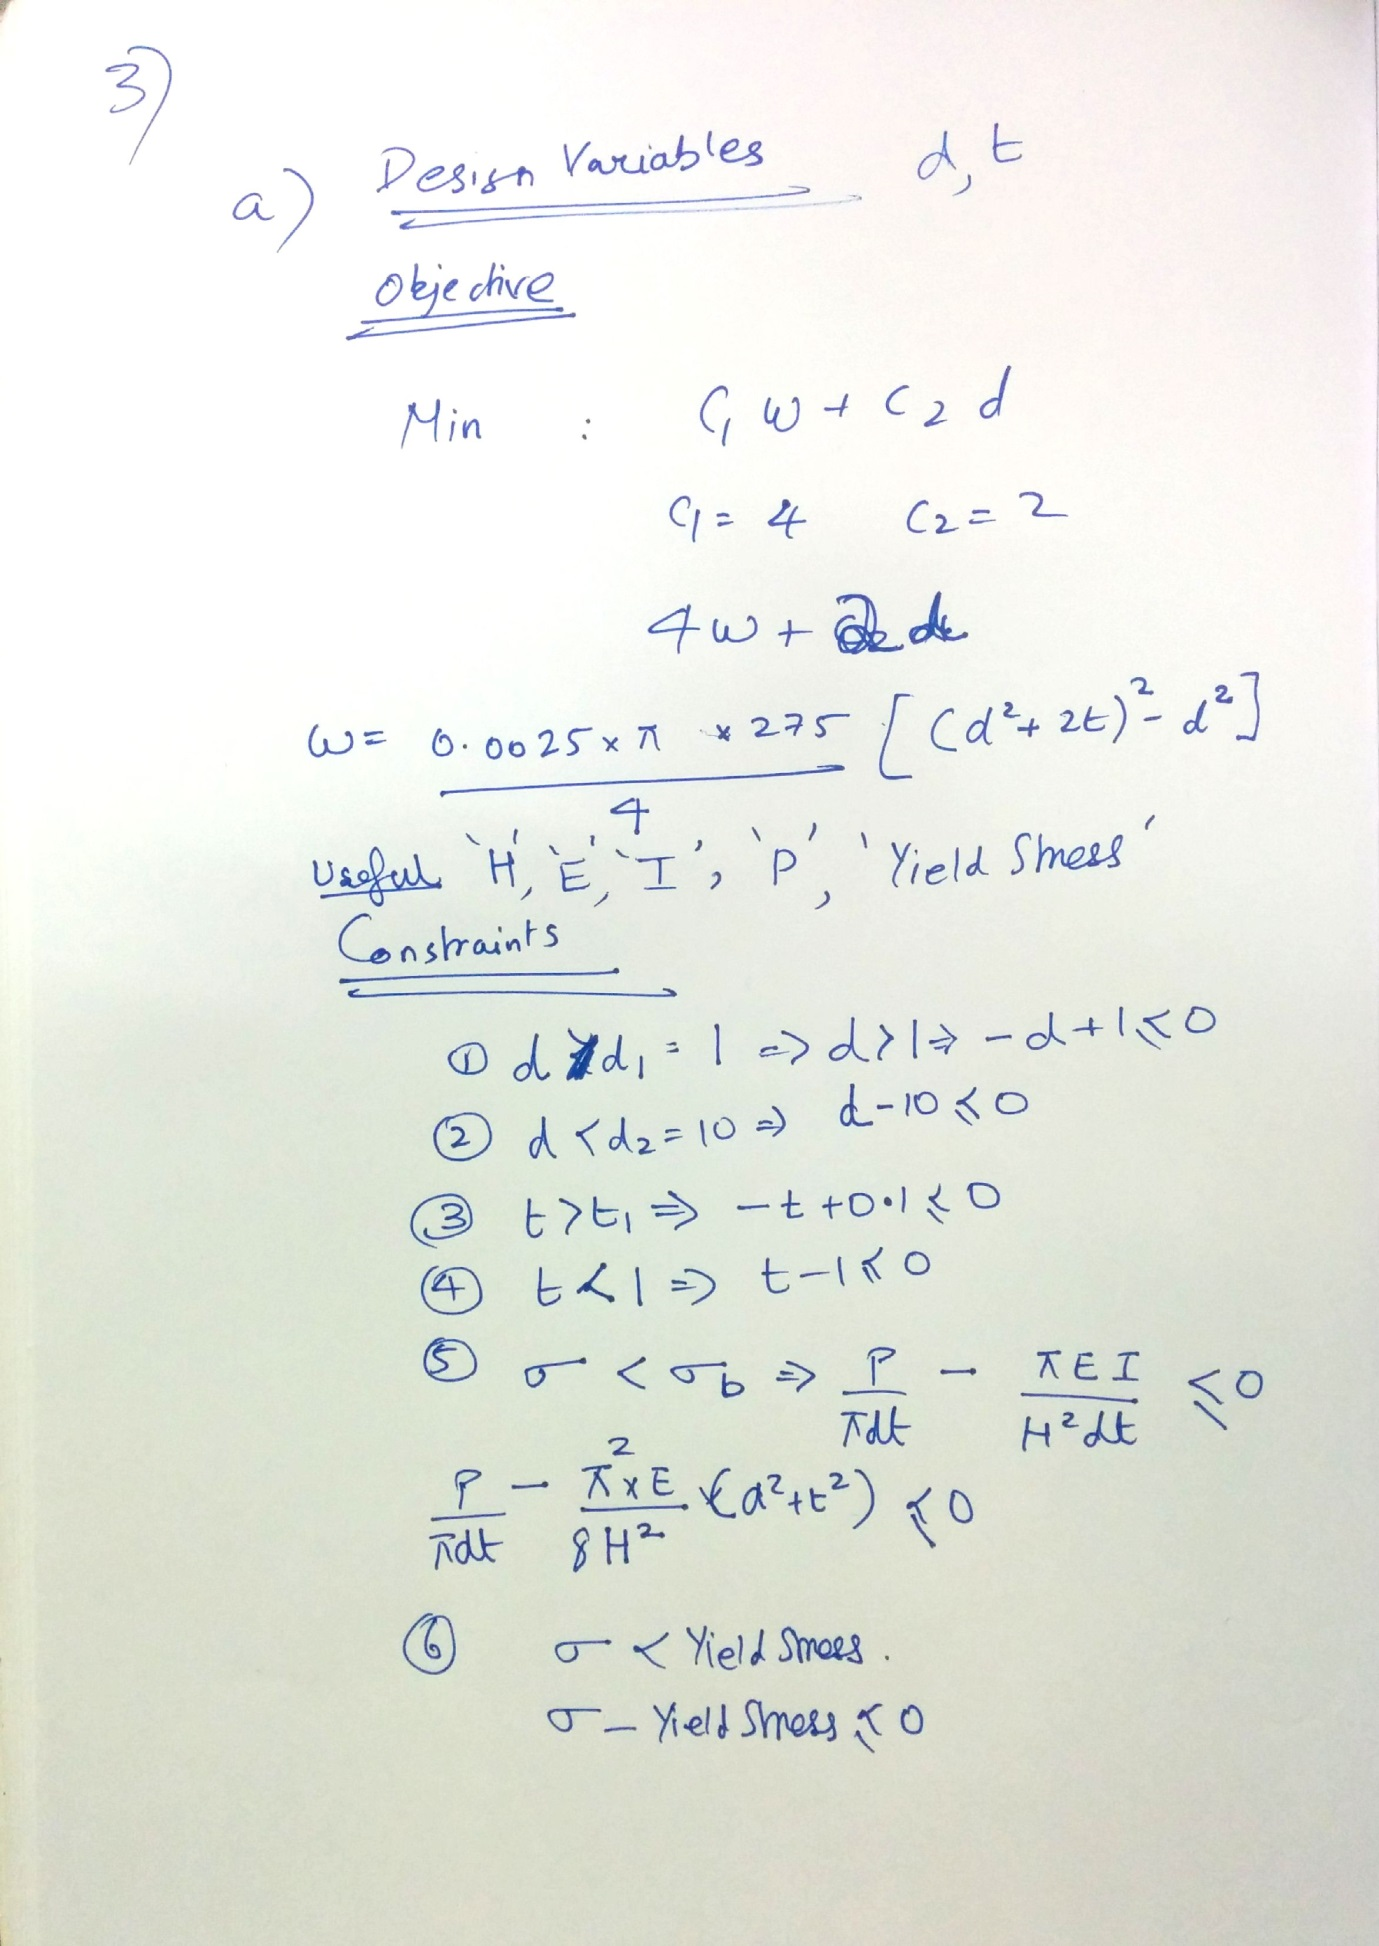 3)
a) Design Variables d, t
Objective
Min : C₁ W + C₂ d
C₁ = 4 C₂ = 2
4W + 2d
W = 0.0025 × π × 275 / 4 [(d² + 2t)² - d²]
Useful 'H', 'E', 'I', 'P', 'Yield Stress'
Constraints
① d > d₁ = 1 => d > 1 => -d + 1 ≤ 0
② d < d₂ = 10 => d - 10 ≤ 0
③ t > t₁ => -t + 0.1 ≤ 0
④ t < 1 => t - 1 ≤ 0
⑤ σ < σb => P / πdt - πEI / H²dt ≤ 0
P / πdt - π² × E / 8H² (d² + t²) ≤ 0
⑥ σ < Yield Stress.
σ - Yield Stress ≤ 0